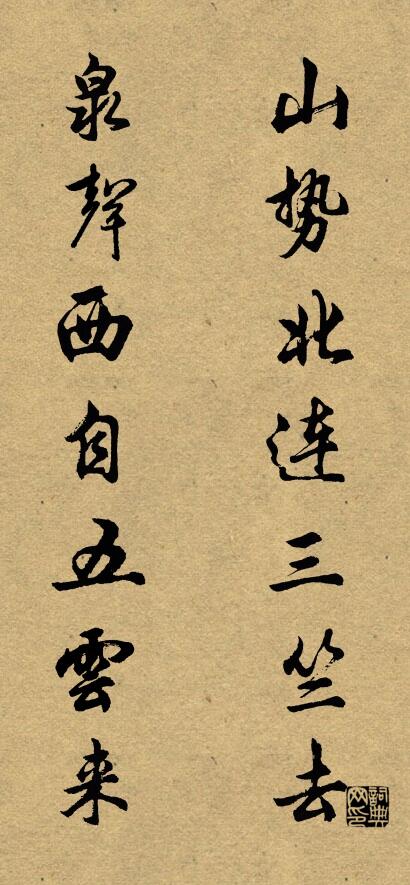 山势北连三竺去
泉聲西自五雲来
詞典网印